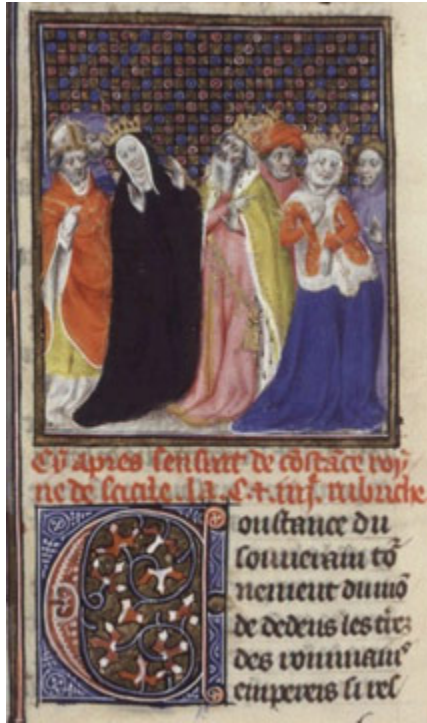 Cy apres sensuit de cõstãce roy
ne de secile. la .C. &. iiij. rubriche
Coustance du
souuerain to᷑
nement du mõ
de dedens les t̃res
des rommaĩs
empereis si rel